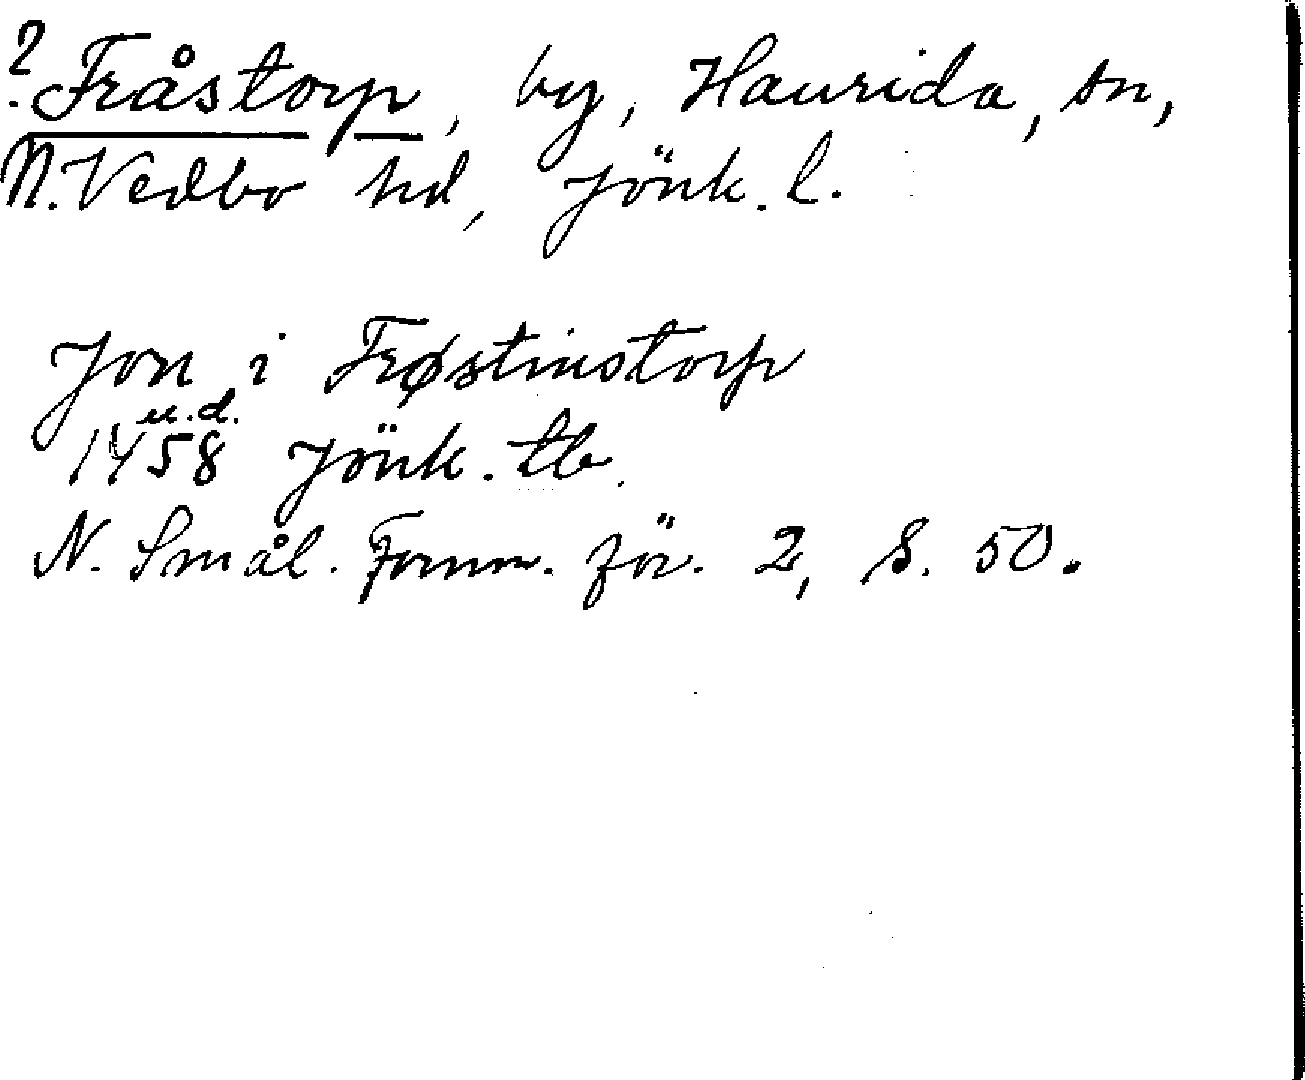 ? Fråstorp, by, Haurida, sn,
N. Vedbo hd, Jönk. l.
Jon i Frøstinstorp
u.d.
1458 Jönk. tb.
N. Smål. Fornm. för. 2, S. 50.